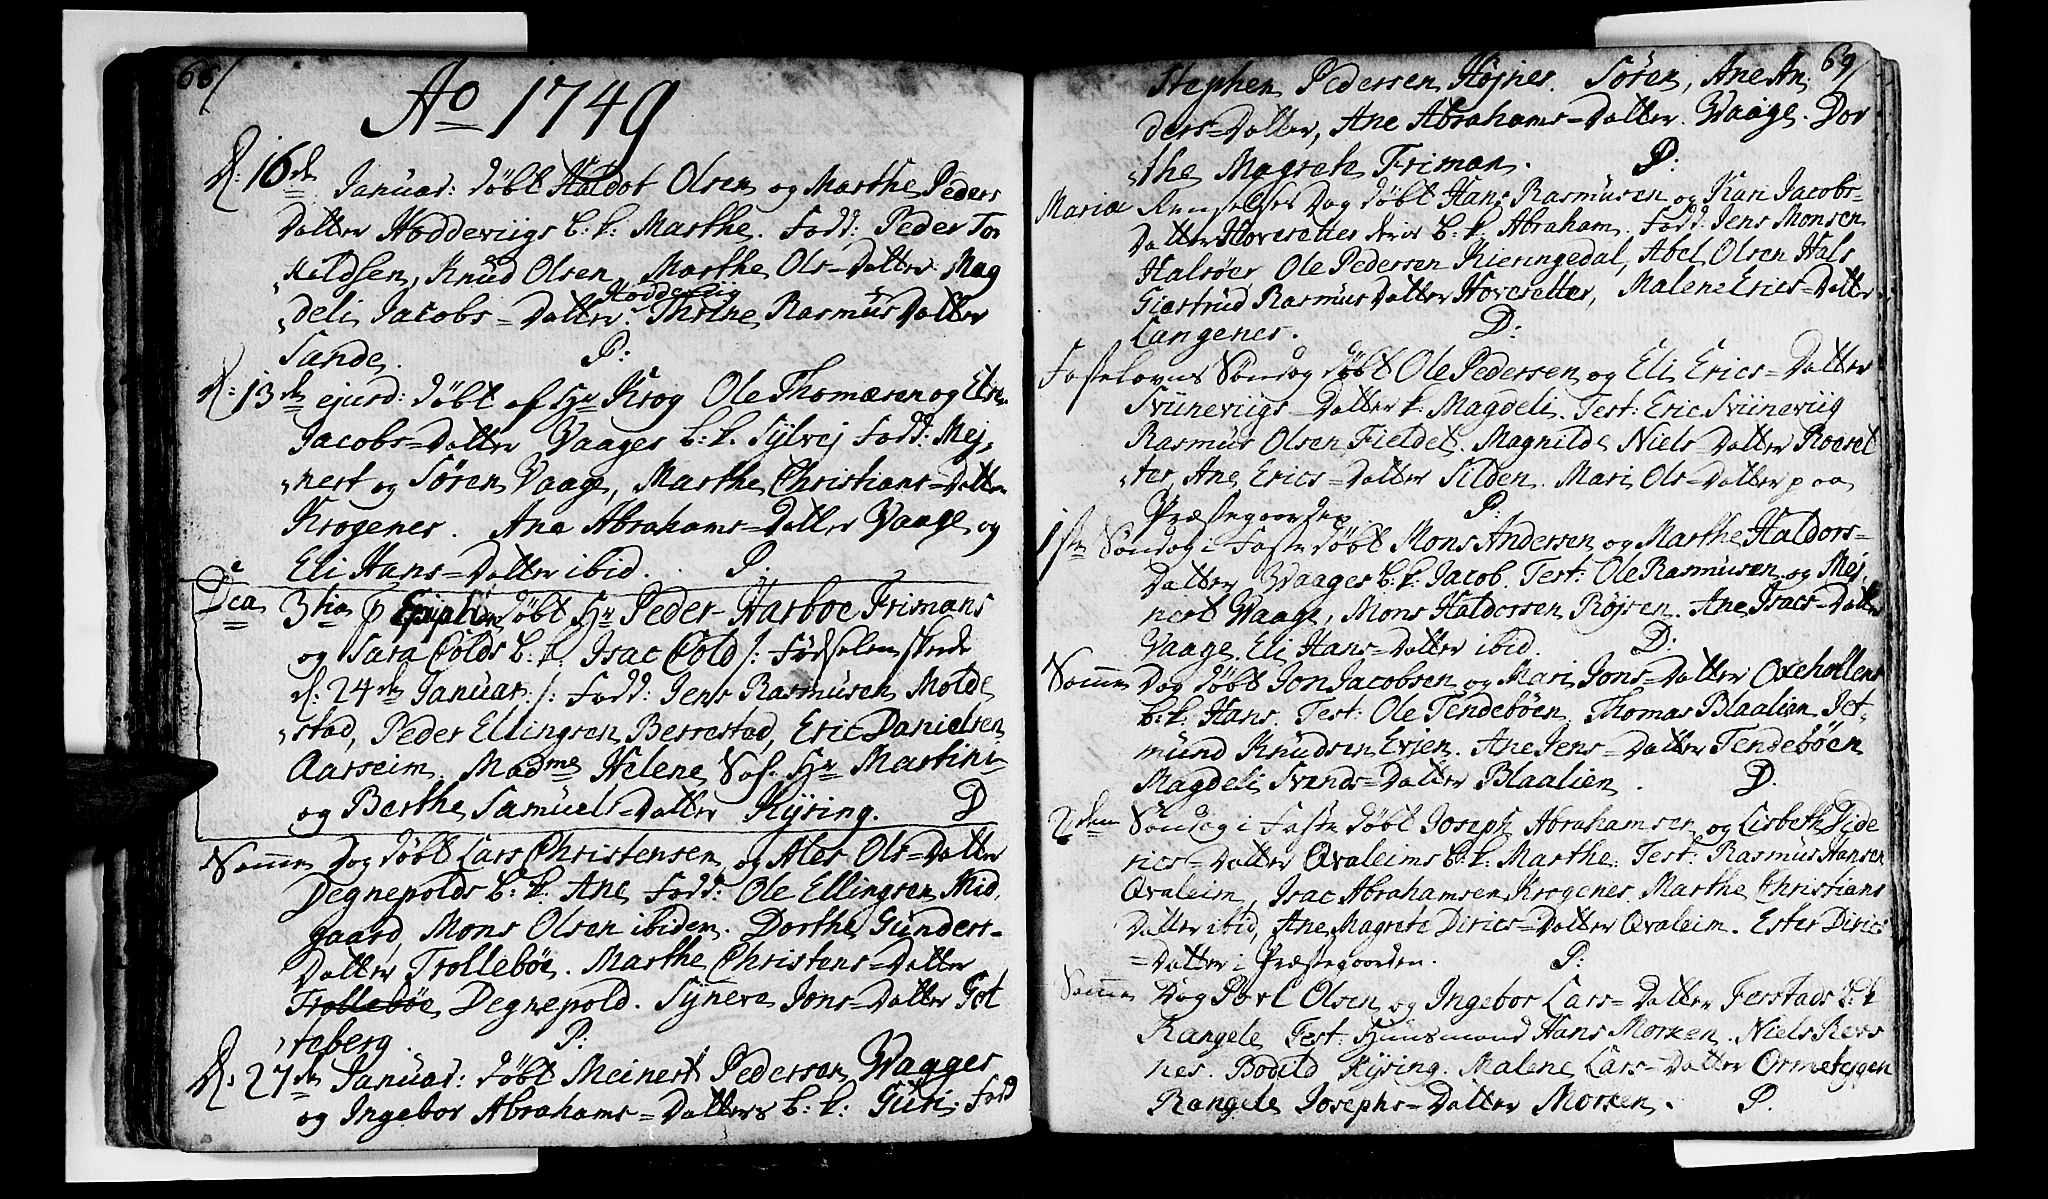 68/
Ao 1749
d: 16 de Januar: døbt Haldor Olsen og Marthe Peders
Datter Hoddeviigs b: k: Marthe. Fadd: Peder Tor
"kildsen, Knud Olsen, Marthe Ols=Datter Mag
"deli Jacobs=Datter Hoddeviig Thrine Rasmus Datter
Sande. P:
d: 13 de ejusd: døbt af Hr Krog Ole Thomæsen og Else
Jacobs=Datter Vaages b: k. Sylvej Fadd: Mej,
"nert og Søren Vaage, Marthe Christians=Datter
Krogenes. Ane Abrahams=Datter Vaage og
Eli Hans=Datter ibid. P.
Dca 3tia p Epiph: døbt Hr Peder Harboe Frimans
og Sara Colds b: k: Isac Cold /: Fødselen skede
d: 24 de Januar: /: Fadd: Jens Rasmusen Molde
"stad, Peder Ellingsen Berrestad, Eric Danielsen
Aarseim. Madme Helene Sal. Hr Martini
og Barthe Samuels=Datter Kjøring. D
Samme Dag døbt Lars Christensen og Ales Ols=Datter
Degnepolds b: k. Ane Fadd: Ole Ellingsen Mid,
gaard, Mons Olsen ibidem. Dorthe Gunders=
Datter Trollebøe. Marthe Christens=Datter
Trollebøe Degnepold. Syneve Jons=Datter Got
"teberg. P:
d: 27 de Januar: døbt Meinert Pedersen Vaages
og Ingebor Abrahams=Datters b: k: Guri. Fadd
69/
Stephen Pedersen Højnes. Søren, Ane An,
ders=Datter, Ane Abrahams=Datter Vaage. Dor
"the Magrete Friman. P:
Mariæ Renselses Dag døbt Hans Rasmusen og Kari Jacobs=
Datter Hovesetter deres b: k. Abraham. Fadd: Jens Monsen
Halsøer Ole Pedersen Kieringedal, Abel Olsen Hals
Giertrud Rasmus Datter Hovesetter, Malene Erics=Datter
Langenes. D:
Fastelovns Søndag døbt Ole Pedersen og Eli Erics=Datter
Sviineviigs Datter k: Magdeli. Test: Eric Sviineviig
Rasmus Olsen Fieldet. Magnilde Niels=Datter Roeset
"ter, Ane Erics=Datter Silden. Mari Ols=Datter paa
Præstegaarden. P:
1ste Søndag i Faste døbt Mons Andersen og Marthe Haldors=
Datter Vaages b: k. Jacob. Test: Ole Rasmusen og Mej,
nert Vaage, Mons Haldorsen Røjsen. Ane Isacs=Datter
Vaage. Eli Hans=Datter ibid. D:
Samme Dag døbt Jon Jacobsen og Mari Jons=Datter Oxehollens
b: k: Hans. Test: Ole Tendebøen, Thomas Blaalien Jet=
mund Knudsen Erien. Ane Jens=Datter Tendebøen
Magdeli Svends=Datter Blaalien. D.
2den Søndag i Faste døbt Joseph Abrahamsen og Lisbeth Dide
rics=Datter Qvaleims b: k: Marthe: Test: Rasmus Hansen
Qvaleim, Isac Abrahamsen Krogenes. Marthe Christians
Datter ibid, Ane Magrete Dirics=Datter Qvaleim. Ester Dirics
=Datter i Præstegaarden. P:
Samme Dag Povl Olsen og Ingebor Lars=Datter Ferstads b: k
Rangele Test: Huusmand Hans Morken. Niels Refs
nes. Bodild Kjøring. Malene Lars=Datter Ormetegen
Rangele Josephs=Datter Morken. P.